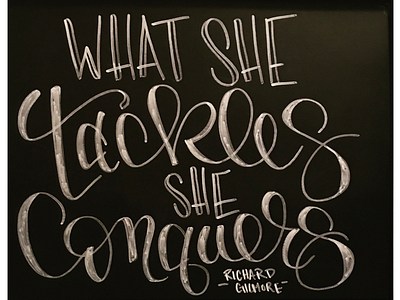 WHAT SHE
Tackles
SHE
Conquers
RICHARD
- GILMORE -